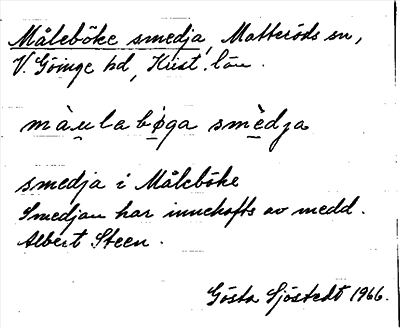 Måleböke smedja, Matteröds sn,
V. Göinge hd, Krist. län.
màu̲labø̲ga smè̲dja
smedja i Måleböke
Smedjan har innehafts av medd.
Albert Steen.
Gösta Sjöstedt 1966.